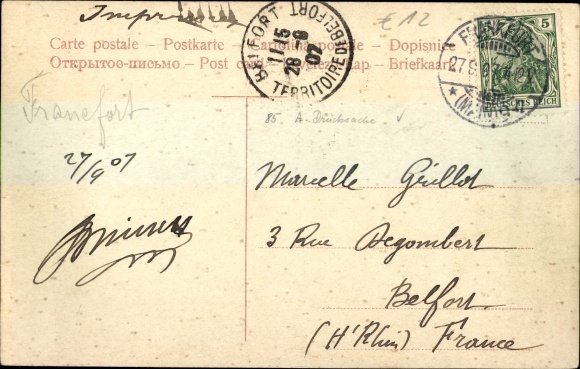 Imprimé
€ 12
Carte postale - Postkarte - Cartolina postale - Dopisnice
Открытое-письмо. - Post card - Briefkaart
BELFORT
11/15
28 -9
07
TERRITOIRE DE BELFORT
FRANKFURT
27.9.
(MAIN)
5
DEUTSCHES REICH
Francfort
85. A-Drucksache
27/9 07
Marcelle Guillot
3 Rue Degombert
Belfort
(Ht Rhin) France